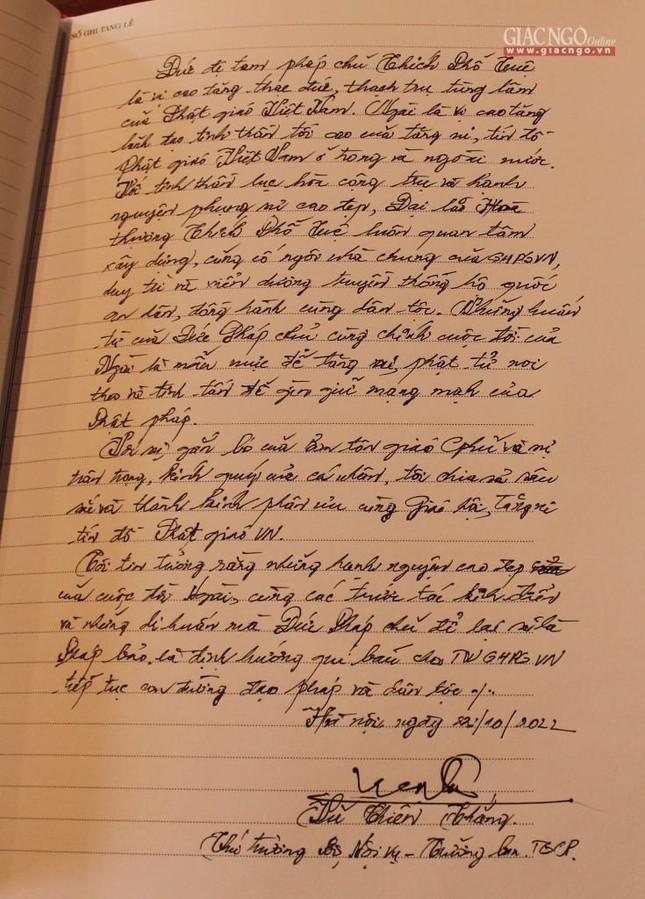 SỔ GHI TANG LỄ
GIÁC NGỘ Online
www.giacngo.vn
Đức đệ tam pháp chủ Thích Phổ Tuệ
là vị cao tăng thạc đức, thạch trụ tùng lâm
của Phật giáo Việt Nam. Ngài là vị cao tăng
lãnh đạo tinh thần tối cao của tăng ni, tín đồ
Phật giáo Việt Nam ở trong và ngoài nước.
Với tinh thần lục hòa cộng trụ và hạnh
nguyện phụng sự cao đẹp, Đại lão Hòa
thượng Thích Phổ Tuệ luôn quan tâm
xây dựng, củng cố ngôi nhà chung của GHPGVN,
duy trì và xiển dương truyền thống hộ quốc
an dân, đồng hành cùng dân tộc. Những huấn
từ của Đức Pháp chủ cùng chính cuộc đời của
Ngài là mẫu mực để tăng ni, phật tử noi
theo và tinh tấn để gìn giữ mạng mạch của
Phật pháp.
Với sự gắn bó của Ban tôn giáo CPhủ và sự
trân trọng, kính quý của cá nhân, tôi chia sẻ sâu
sắc và thành kính phân ưu cùng Giáo hội, Tăng ni
tín đồ Phật giáo VN.
Tôi tin tưởng rằng những hạnh nguyện cao đẹp
của cuộc đời Ngài, cùng các trước tác kinh điển
và những di huấn mà Đức Pháp chủ để lại sẽ là
Pháp bảo, là định hướng quí báu cho TW GHPGVN
tiếp tục con đường đạo pháp và dân tộc ./.
Hà nội ngày 22/10/2022
Vũ Chiến Thắng.
Thứ trưởng Bộ Nội vụ - Trưởng ban TGCP.